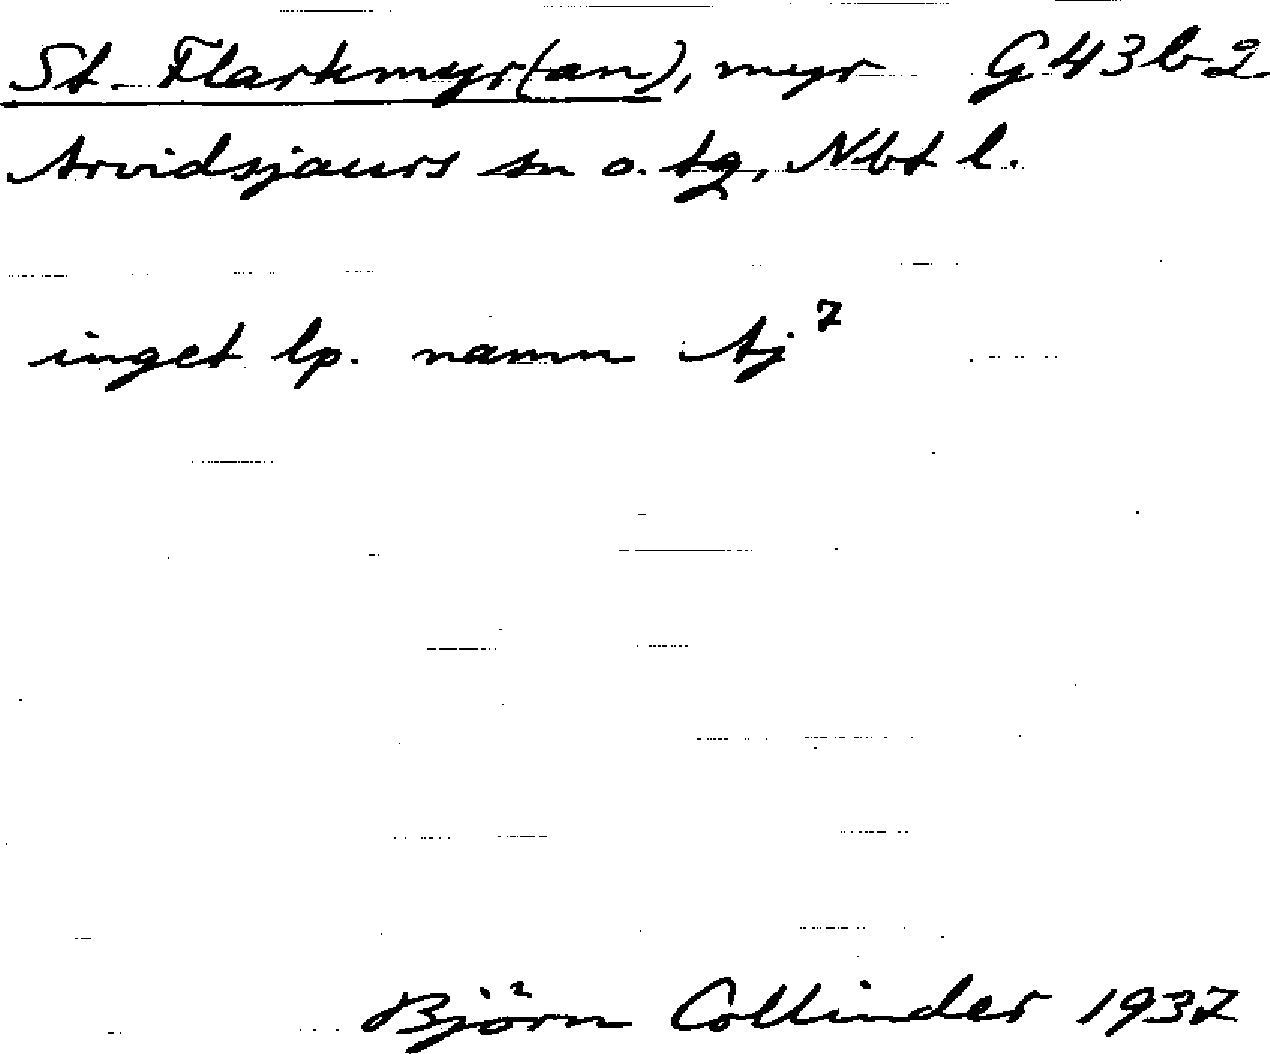 St. Flarkmyr(an), myr G43b2
Arvidsjaurs sn o. tg, Nbt l.
inget lp. namn Aj⁷
Björn Collinder 1937